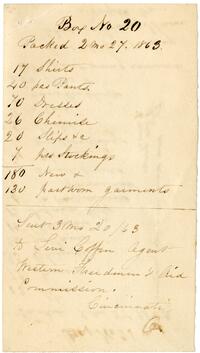 Box No 20
Packed 2 Mo 27. 1863.
17 Shirts
40 prs Pants.
70 Dresses
26 Chemise
20 Slips &c
7 prs Stockings
180 New &
130 partworn garments
Sent 3 Mo 20/63
To Levi Coffin Agent
Western Freedmen's Aid
Commission.
Cincinnati